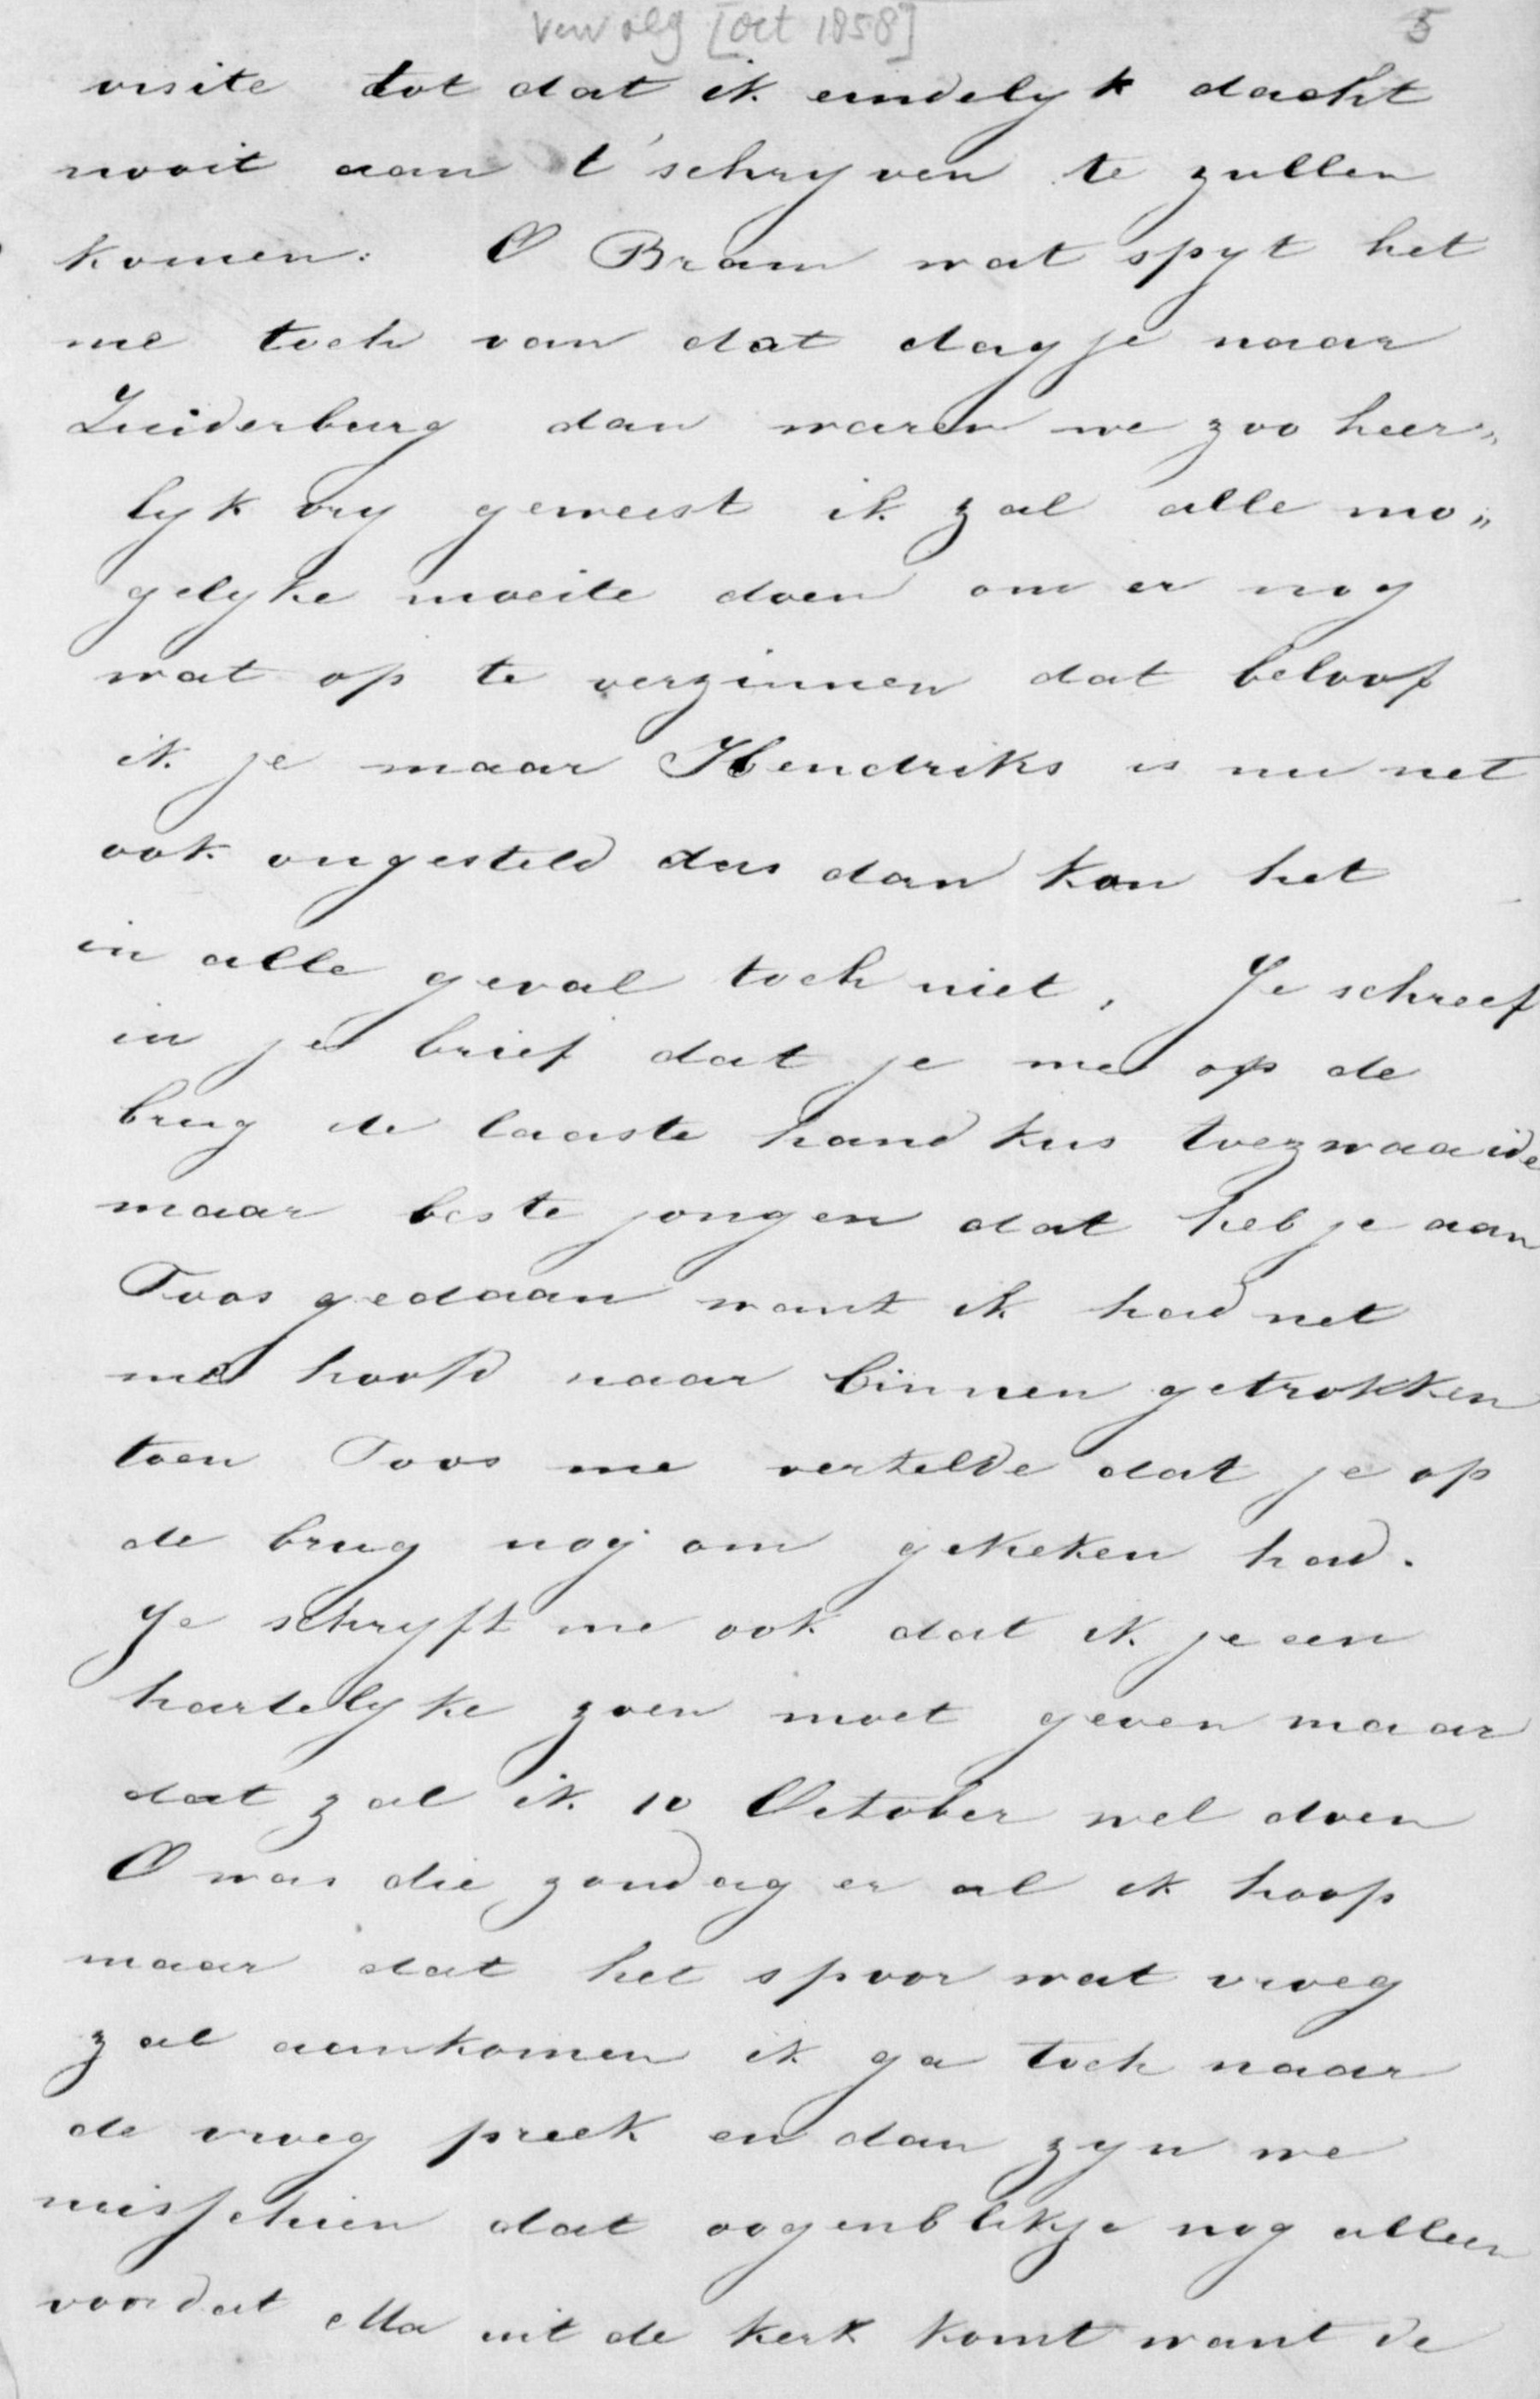 vervolg [oct 1858] 5
visite tot dat ik eindelyk dacht
nooit aan t'schryven te zullen
komen: O Bram wat spyt het
me toch van dat dagje naar
Zuiderburg dan waren we zoo heer„
lyk vry geweest ik zal alle mo„
gelyke moeite doen om er nog
wat op te verzinnen dat beloof
ik je maar Hendriks is nu net
ook ongesteld dus dan kon het
in alle geval toch niet. Je schreef
in je brief dat je me op de
brug de laaste hand kus toezwaaide
maar beste jongen dat heb je aan
Toos gedaan want ik had net
me hoofd naar binnen getrokken
toen Toos me vertelde dat je op
de brug nog om gekeken had.
Je schryft me ook dat ik je een
hartelyke zoen moet geven maar
dat zal ik 10 October wel doen
O was die zondag er al ik hoop
maar dat het spoor wat vroeg
zal aankomen ik ga toch naar
de vroeg preek en dan zyn we
misschien dat oogenblikje nog alleen
voordat Ma uit de kerk komt want de